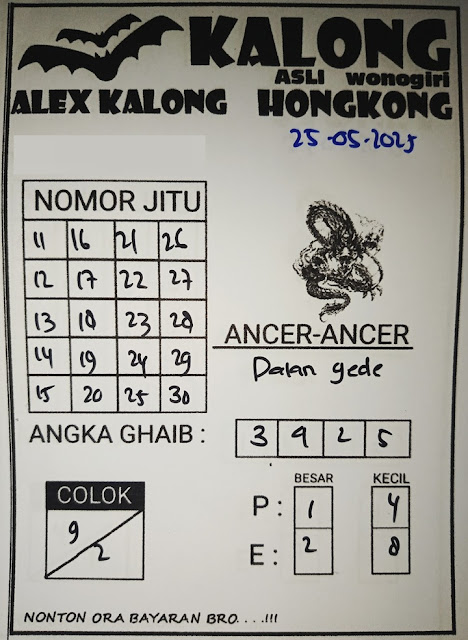 KALONG
ASLI wonogiri
ALEX KALONG HONGKONG
25-05-2025
NOMOR JITU
11 16 21 26
12 17 22 27
13 18 23 28
14 19 24 29
15 20 25 30
ANCER-ANCER
Dalan gede
ANGKA GHAIB : 3 9 2 5
COLOK
9
2
BESAR KECIL
P : 1 4
E : 2 8
NONTON ORA BAYARAN BRO. . . .!!!